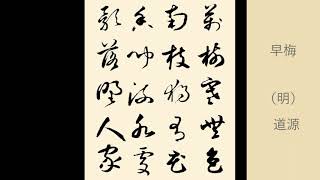 早梅
（明）
道源
萬樹寒無色
南枝獨有花
香聞流水處
影落野人家